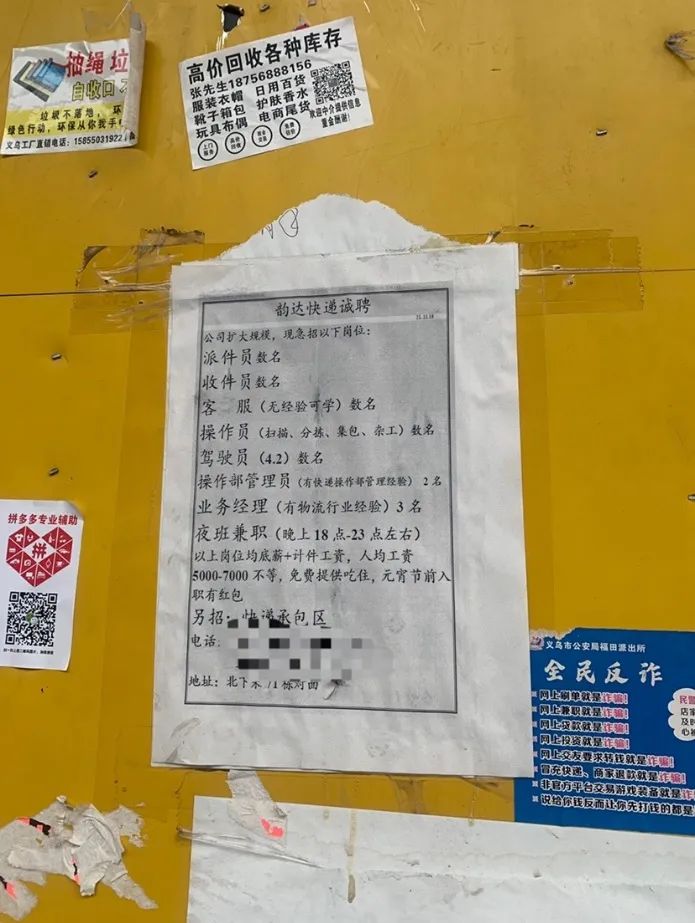 抽绳垃
自收口
垃圾不落地，环
绿色行动，环保从你我手
义乌工厂直销电话：15855031922
高价回收各种库存
张先生18756888156
服装衣帽 日用百货
靴子箱包 护肤香水
玩具布偶 电商尾货
欢迎中介提供信息
重金酬谢！
韵达快递诚聘
公司扩大规模，现急招以下岗位：
派件员数名
收件员数名
客 服（无经验可学）数名
操作员（扫描、分拣、集包、杂工）数名
驾驶员（4.2）数名
操作部管理员（有快递操作部管理经验） 2名
业务经理（有物流行业经验）3名
夜班兼职（晚上18点-23点左右）
以上岗位均底薪+计件工资，人均工资
5000-7000不等，免费提供吃住，元宵节前入
职有红包
另招：快递承包区
电话
地址：北下朱71栋对面
拼多多专业辅助
拼
义乌市公安局福田派出所
全民反诈
网上刷单就是诈骗！
网上兼职就是诈骗！
网上贷款就是诈骗！
网上投资就是诈骗！
网上交友要求转钱就是诈骗！
冒充快递、商家退款就是诈骗！
非官方平台交易游戏装备就是诈
说给你钱反而让你先打钱的都是
民警
店家
及时
心被